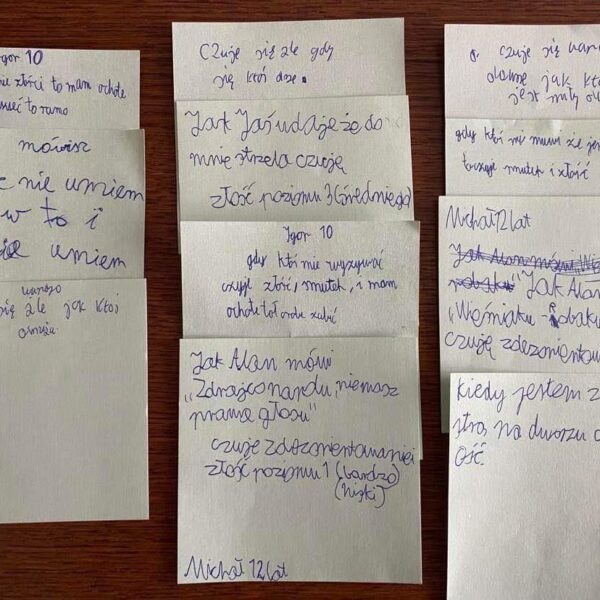 Igor 10
złości to mam ochote
to samo
mówisz
nie umiem
w to i
umiem
bardzo
się źle jak ktoś
Czuje się źle gdy
się ktoś drze.
Jak Jaś udaje że do
mnie strzela czuję
złość poziomu 3 (średniego)
Igor 10
gdy ktoś mie wyzywać
czuje złość, smutek, i mam
ochote tą osobe zabić
Jak Alan mówi
„Zdrajco narodu, nie masz
prawa głosu"
czuje zdezorientowanie i
złość poziomu 1 (bardzo)
(niski)
Michał 12 lat
czuje się
jak
jest miły
gdy ktoś mi muwi że
smutek i złość
Michał 12 lat
Jak Alan mówi „Wie
robaku" Jak Alan
„Wieśniaku - Robaku
czuję zdezorientowa
Kiedy jestem z
na dworzu
ość.